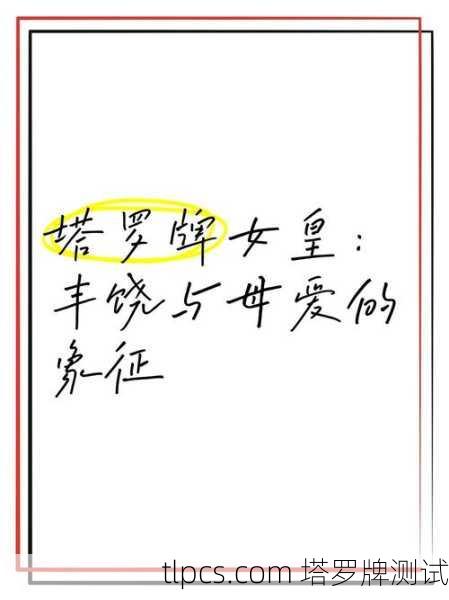 塔罗牌女皇：
丰饶与母爱的
象征
tlpcs.com 塔罗牌测试